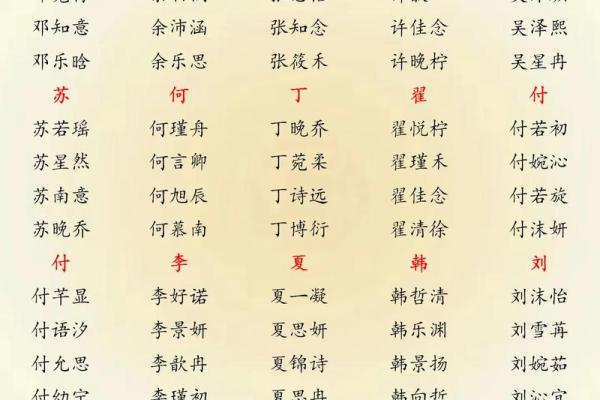 邓知意 余沛涵 张知念 许佳念 吴泽熙
邓乐晗 余乐思 张筱禾 许晚柠 吴星冉
苏 何 丁 翟 付
苏若瑶 何瑾舟 丁晚乔 翟悦柠 付若初
苏星然 何言卿 丁菀柔 翟瑾禾 付婉沁
苏南意 何旭辰 丁诗远 翟佳念 付若旋
苏晚乔 何慕南 丁博衍 翟清徐 付沫妍
付 李 夏 韩 刘
付芊显 李好诺 夏一凝 韩哲清 刘沫怡
付语汐 李景妍 夏思妍 韩乐渊 刘雪苒
付允思 李歆冉 夏锦诗 韩景扬 刘婉茹
付幼宁 李瑾初 夏思冉 韩向哲 刘沁宜